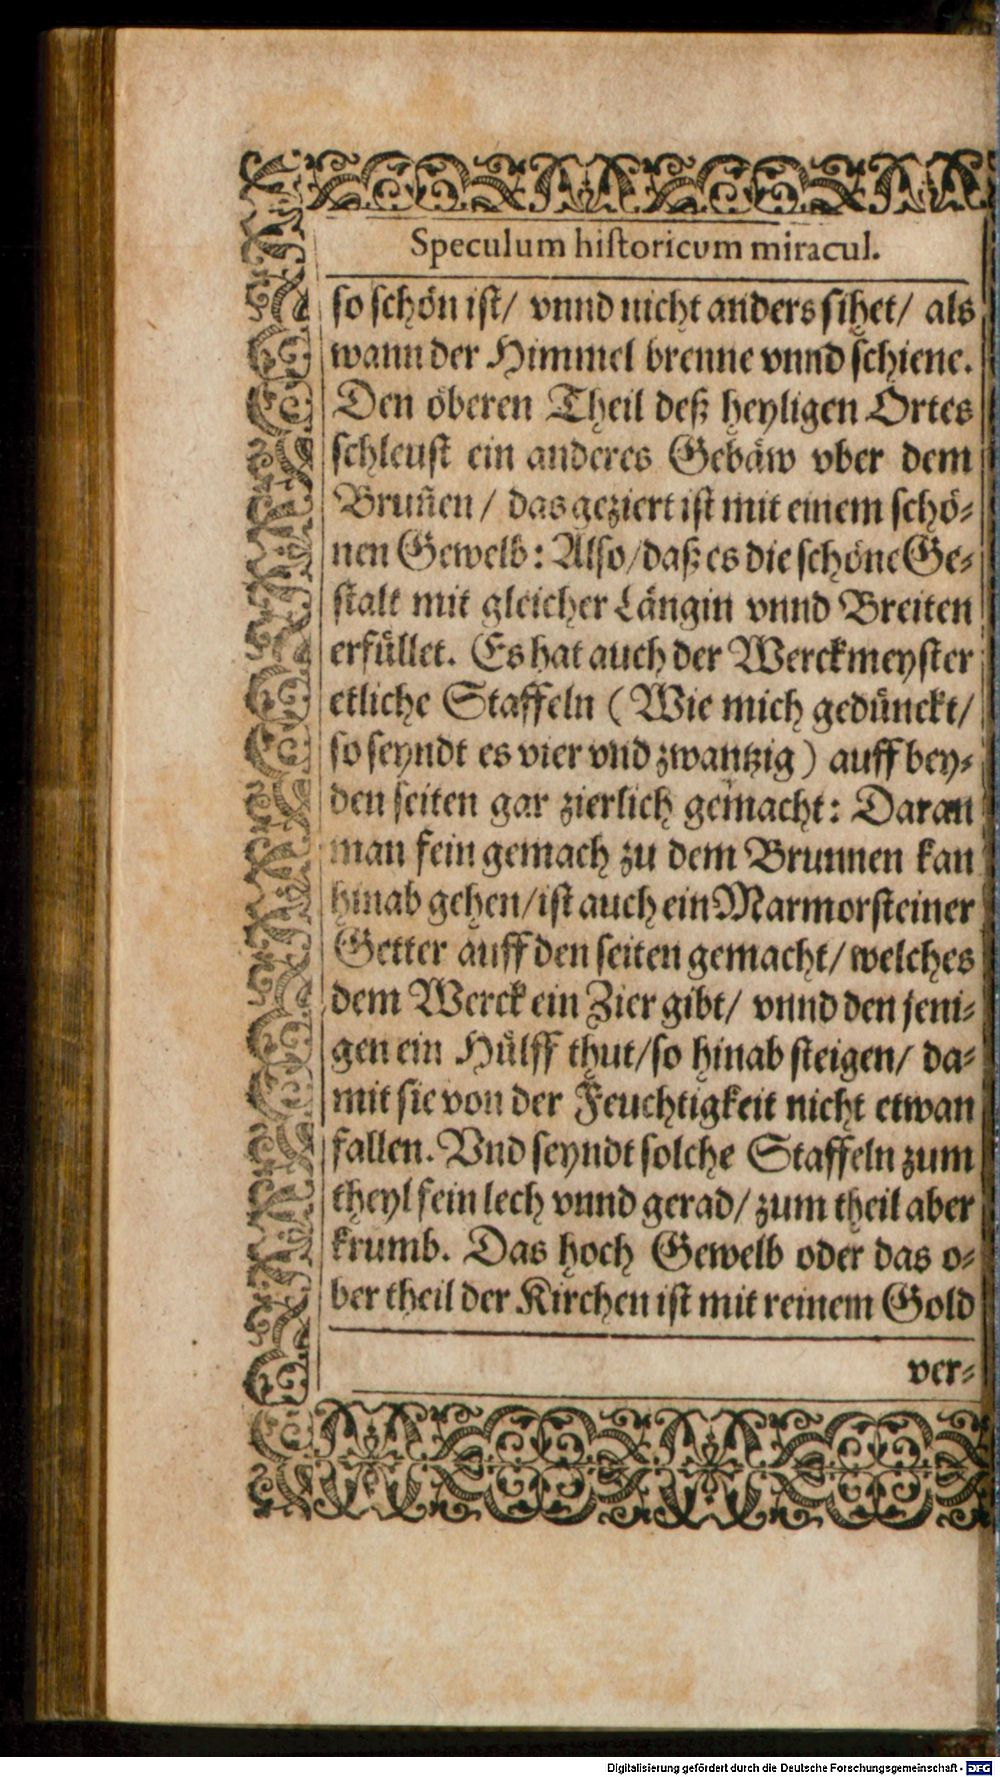 Speculum historicvm miracul.
so schön ist/ vnnd nicht anders sihet/ als
wann der Himmel brenne vnnd schiene.
Den öberen Theil deß heyligen Ortes
schleust ein anderes Gebäw vber dem
Bruñen / das geziert ist mit einem schö-
nen Gewelb: Also/daß es die schöne Ge-
stalt mit gleicher Längin vnnd Breiten
erfüllet. Es hat auch der Werckmeyster
etliche Staffeln (Wie mich gedünckt/
so seyndt es vier vnd zwantzig) auff bey-
den seiten gar zierlich gemacht: Daran
man fein gemach zu dem Brunnen kan
hinab gehen/ist auch ein Marmorsteiner
Getter auff den seiten gemacht/ welches
dem Werck ein Zier gibt/ vnnd den jeni-
gen ein Hülff thut/so hinab steigen/ da-
mit sie von der Feuchtigkeit nicht etwan
fallen. Vnd seyndt solche Staffeln zum
theyl fein lech vnnd gerad/ zum theil aber
krumb. Das hoch Gewelb oder das o-
ber theil der Kirchen ist mit reinem Gold
ver-
Digitalisierung gefördert durch die Deutsche Forschungsgemeinschaft - DFG